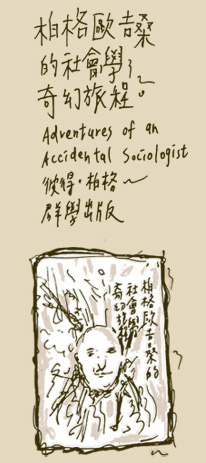 柏格歐吉桑
的社會學
奇幻旅程。
Adventures of an
Accidental Sociologist
彼得·柏格~
群學出版
柏格歐吉桑的
社會學
奇幻旅程